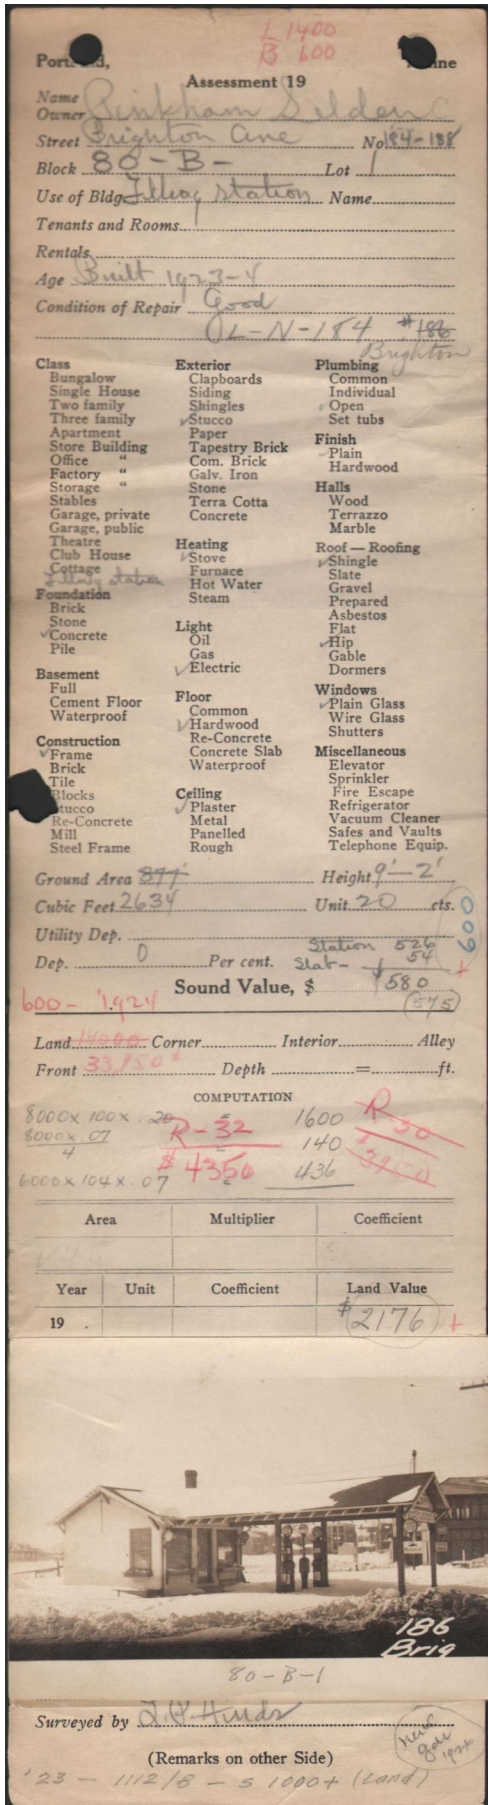 L 1400
B 600
Portland, Maine
Assessment 19
Name
Owner Pinkham Selden
Street Brighton Ave No 184-188
Block 80-B- Lot 1
Use of Bldg. Filling station Name
Tenants and Rooms
Rentals
Age Built 1923-4
Condition of Repair Good
L-N-184 #186
Brighton
Class
Bungalow
Single House
Two family
Three family
Apartment
Store Building
Office "
Factory "
Storage "
Stables
Garage, private
Garage, public
Theatre
Club House
Cottage
Filling station
Foundation
Brick
Stone
✓Concrete
Pile
Basement
Full
Cement Floor
Waterproof
Construction
✓Frame
Brick
Tile
Blocks
Stucco
Re-Concrete
Mill
Steel Frame
Exterior
Clapboards
Siding
Shingles
✓Stucco
Paper
Tapestry Brick
Com. Brick
Galv. Iron
Stone
Terra Cotta
Concrete
Heating
✓Stove
Furnace
Hot Water
Steam
Light
Oil
Gas
✓Electric
Floor
Common
✓Hardwood
Re-Concrete
Concrete Slab
Waterproof
Ceiling
✓Plaster
Metal
Panelled
Rough
Plumbing
Common
Individual
✓Open
Set tubs
Finish
✓Plain
Hardwood
Halls
Wood
Terrazzo
Marble
Roof — Roofing
✓Shingle
Slate
Gravel
Prepared
Asbestos
Flat
✓Hip
Gable
Dormers
Windows
✓Plain Glass
Wire Glass
Shutters
Miscellaneous
Elevator
Sprinkler
Fire Escape
Refrigerator
Vacuum Cleaner
Safes and Vaults
Telephone Equip.
Ground Area 877' Height 9'-2'
Cubic Feet 2634' Unit 20 cts.
600
Utility Dep.
Station 526
Dep. 0 Per cent. Slab- 54 +
Sound Value, $ $580
600- 1924 (575)
Land 14000 Corner Interior Alley
Front 33,950 Depth = ft.
COMPUTATION
8000 x 100 x .20 = 1600
8000 x 07 = 140
4
6000 x 104 x .07 = 436
R-32
$4350
R-30
$3950
Area Multiplier Coefficient
Year Unit Coefficient Land Value
19 . $2176 +
186
Brig
80-B-1
Surveyed by
(Remarks on other Side)
new
gar
1924
'23 - 1112/8 - S 1000+ (Land)